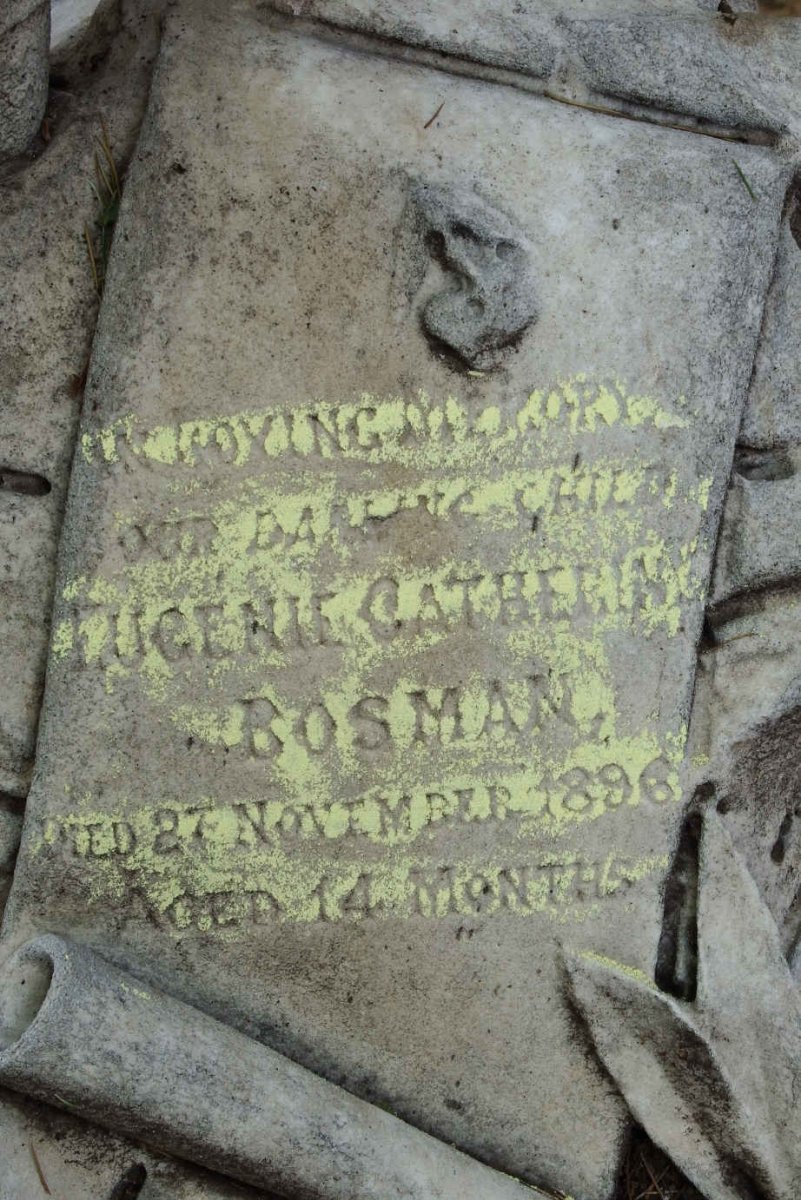 IN LOVING MEMORY
OUR DARLING CHILD
EUGENIE CATHERINE
BOSMAN,
DIED 27 NOVEMBER 1896
AGED 14 MONTHS